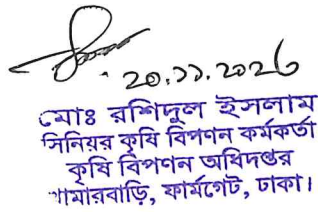 ২০.১১.২০২৩
মোঃ রশিদুল ইসলাম
সিনিয়র কৃষি বিপণন কর্মকর্তা
কৃষি বিপণন অধিদপ্তর
খামারবাড়ি, ফার্মগেট, ঢাকা।